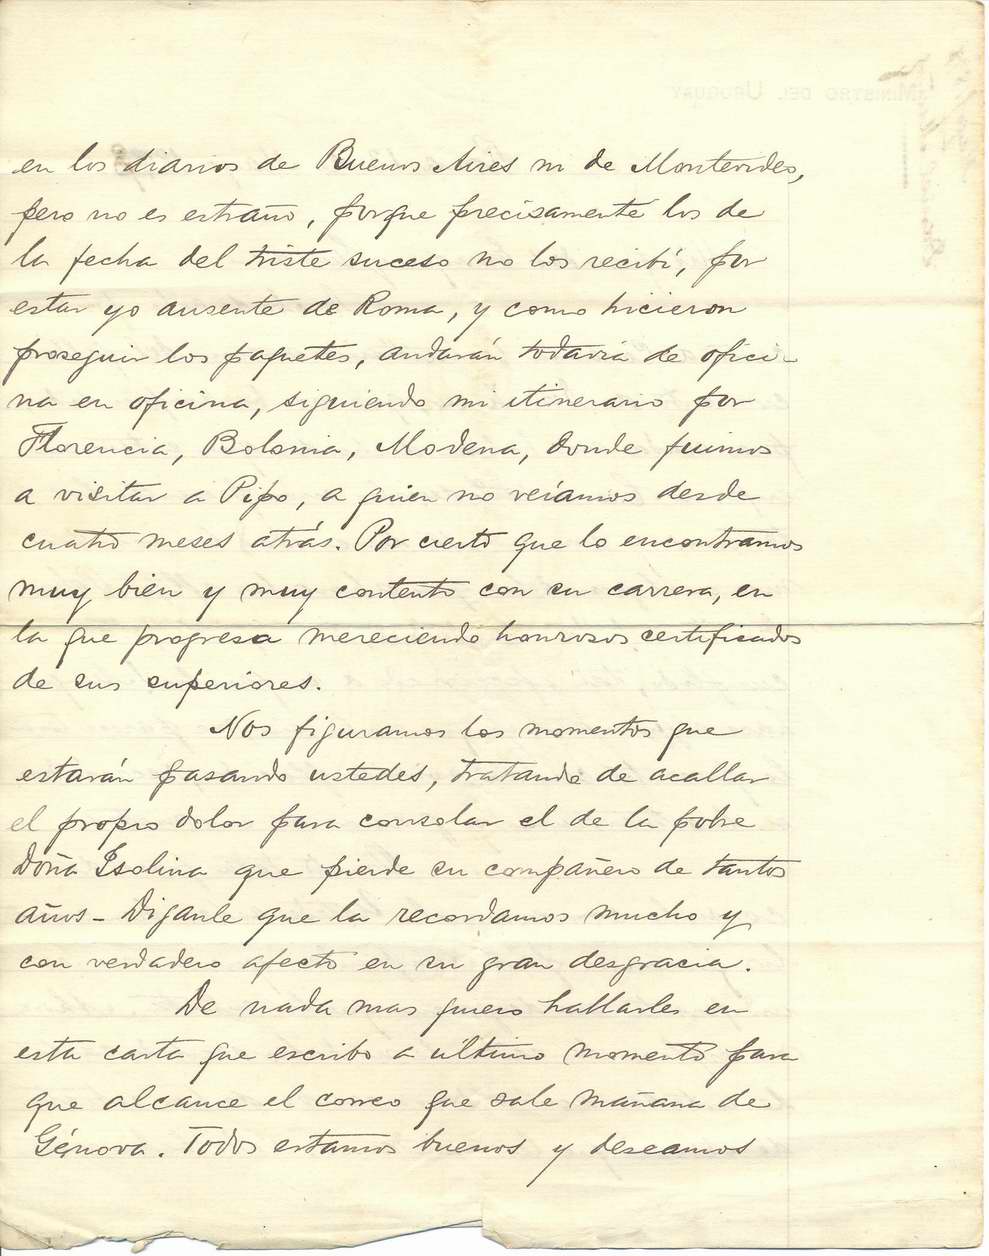 MINISTRO DEL URUGUAY
en los diarios de Buenos Aires ni de Montevideo,
pero no es estraño, porque precisamente los de
la fecha del triste suceso no los recibí, por
estar yo ausente de Roma, y como hicieron
proseguir los paquetes, andarán todavia de ofici-
na en oficina, siguiendo mi itinerario por
Florencia, Bolonia, Modena, donde fuimos
a visitar a Pipo, a quien no veíamos desde
cuatro meses atrás. Por cierto que lo encontramos
muy bien y muy contento con su carrera, en
la que progresa mereciendo honrosos certificados
de sus superiores.
Nos figuramos los momentos que
estarán pasando ustedes, tratando de acallar
el propio dolor para consolar el de la pobre
Doña Isolina que pierde su compañero de tantos
años - Diganle que la recordamos mucho y
con verdadero afecto en su gran desgracia.
De nada mas quiero hablarles en
esta carta que escribo a último momento para
que alcance el correo que sale mañana de
Génova. Todos estamos buenos y deseamos